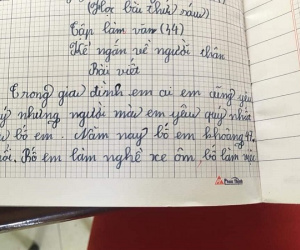 (Học bài thứ sáu)
Tập làm văn (44)
Kể ngắn về người thân
Bài viết
Trong gia đình em ai em cũng yêu
quý những người mà em yêu quý nhất
bố em. Năm nay bố em khoảng 47
tuổi. Bố em làm nghề xe ôm, bố làm việc